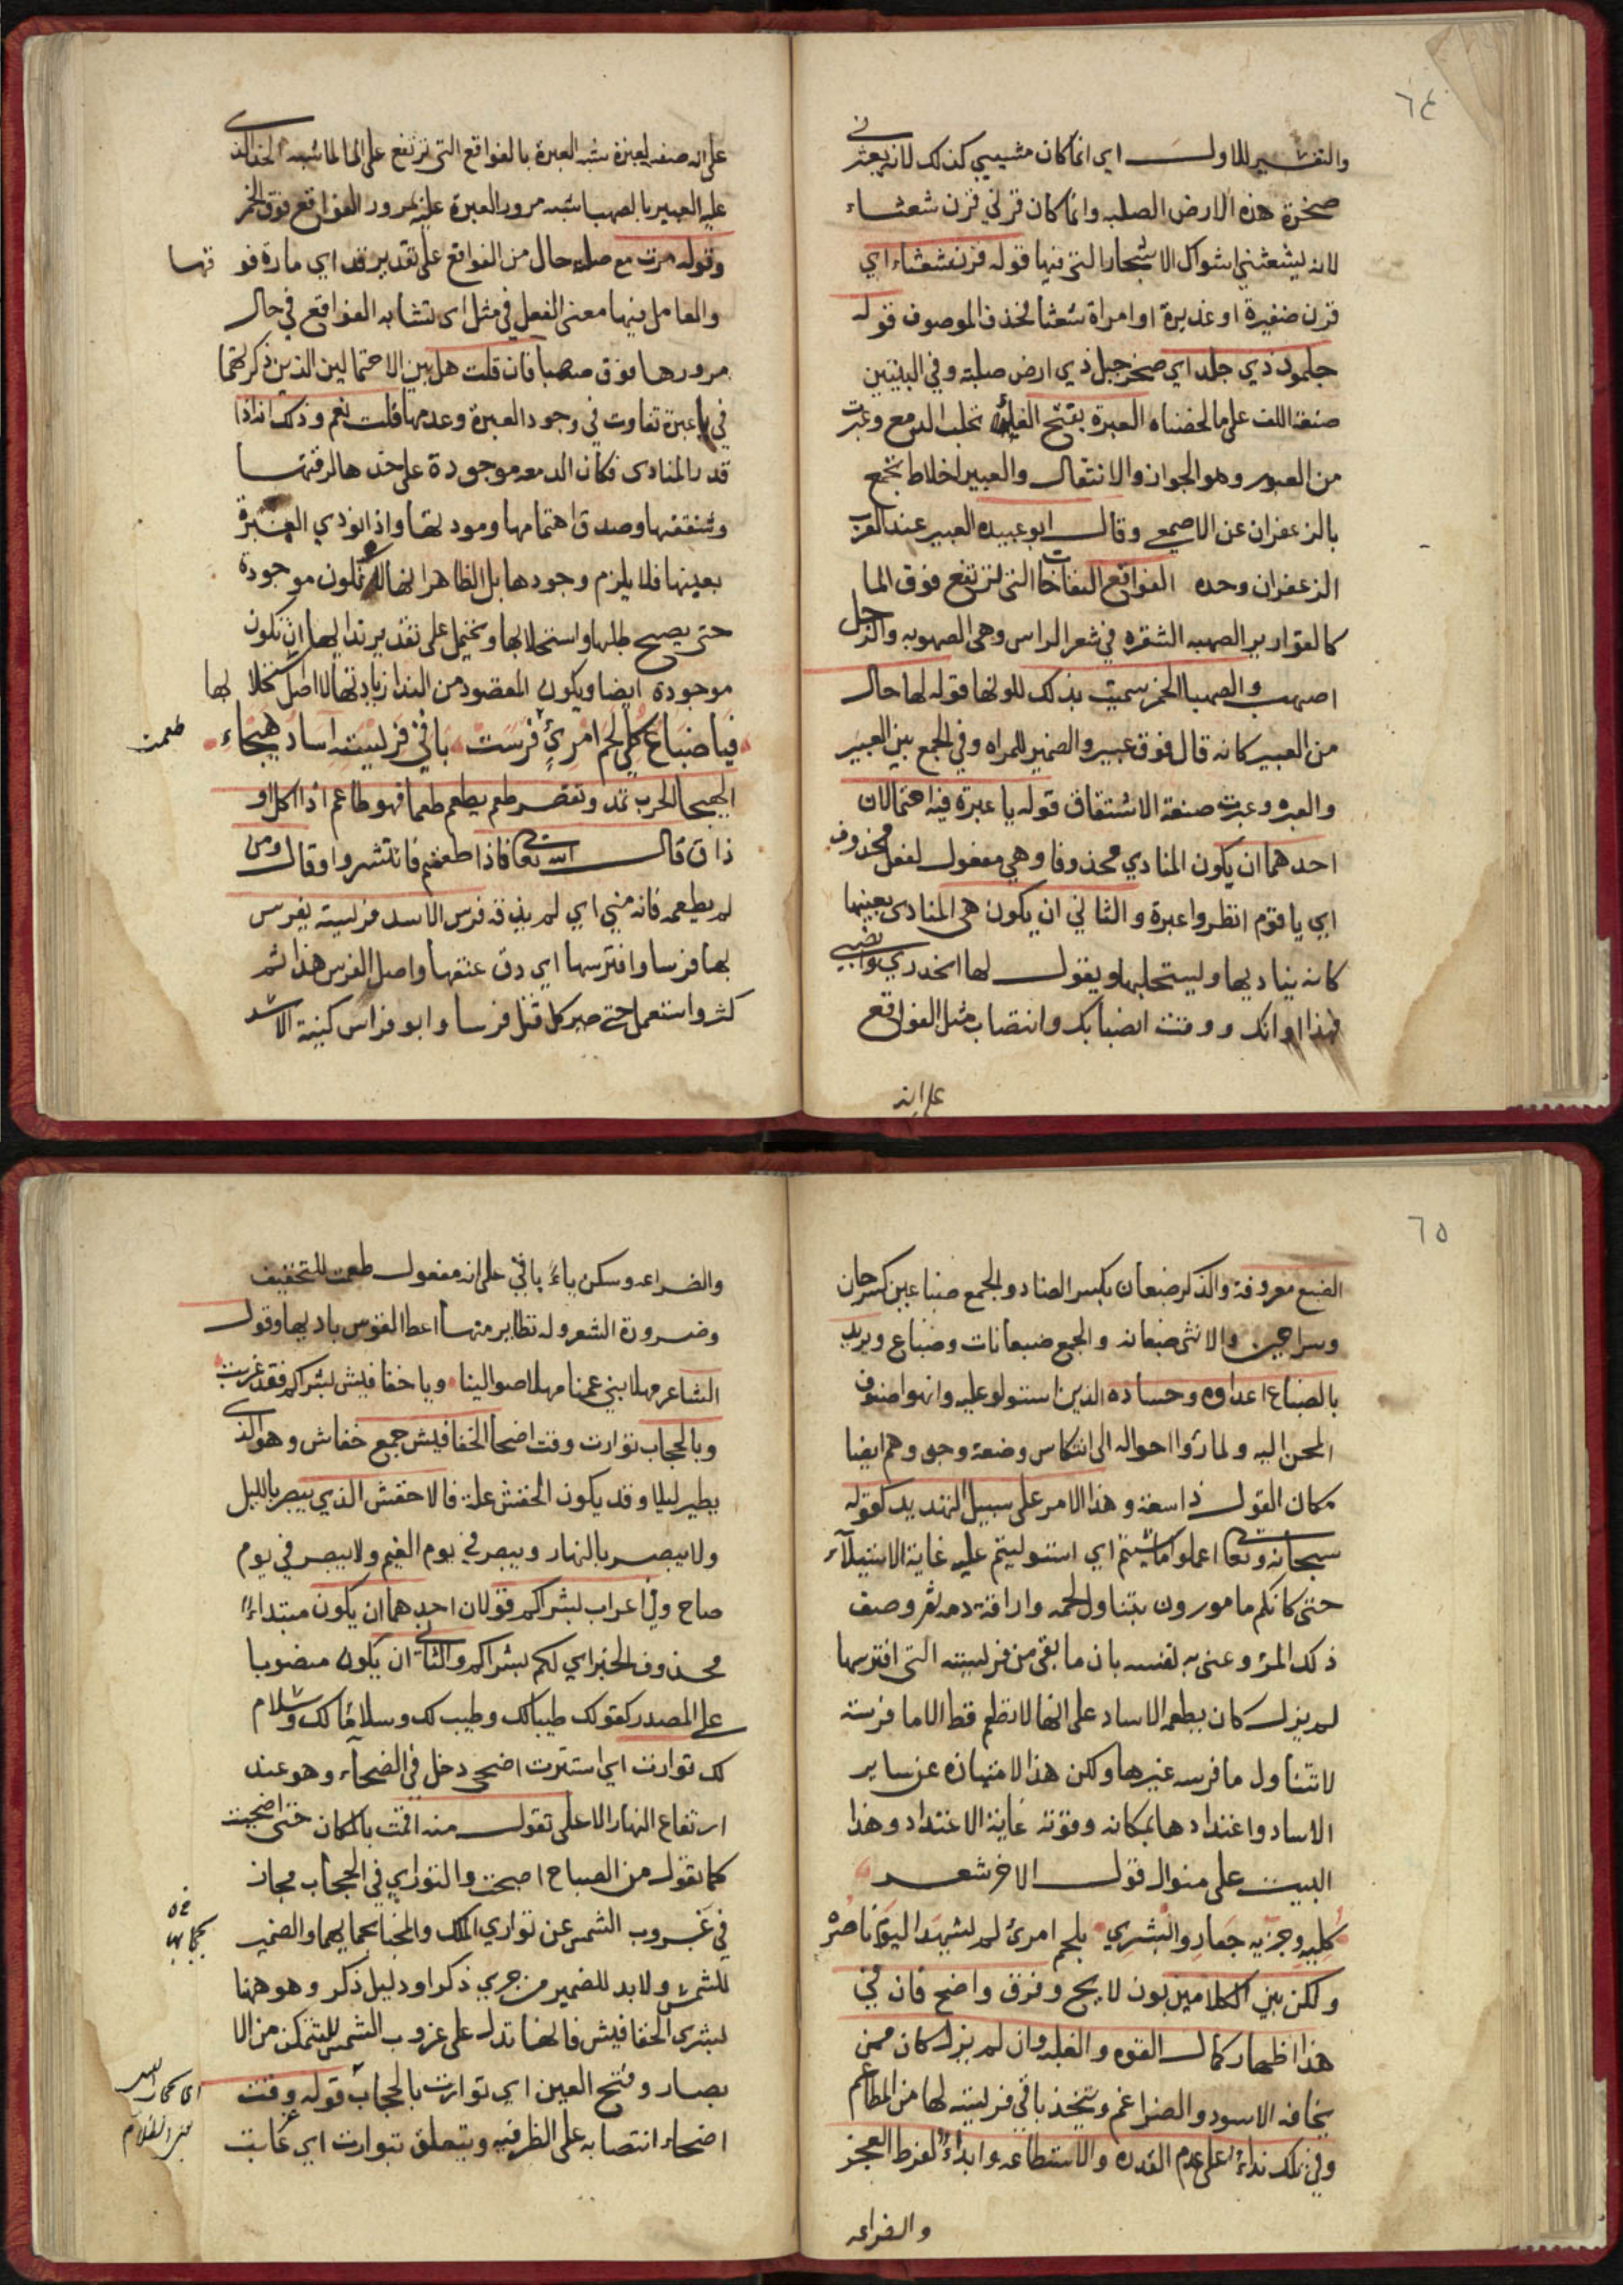 ٦٤
والتفسير للاول اي انما كان مشيبي كذلك لانه يعتريني
صخرة هذه الارض الصلبه وانما كان قرني قرن شعثاء
لانه يشعثني اشواك الاشجار التي فيها قوله قرن شعثاء اي
قرن ضفيرة او غديرة او امراة شعثا فحذف الموصوف قوله
جلمود ذي جلد اي صخر جبل ذي ارض صلبة وفي البيتين
صنعة اللف على ما لخصناه العبرة بفتح الفاء تحلب الدمع وعبرت
من العبور وهو الجواز والانتقال والعبير اخلاط تجمع
بالزعفران عن الاصمعي وقال ابو عبيده العبير عند العرب
الزعفران وحده الفواقع النفاخات التي ترتفع فوق الما
كالقوارير الصهبه الشقره في شعر الراس وهي الصهوبه والرجل
اصهب والصهبا الخمر سميت بذلك للونها قوله لها حال
من العبير كانه قال فوق عبير والضمير للمراه وفي الجمع بين العبير
والعبره وعبرت صنعة الاشتقاق قوله يا عبرة فيه احتمالان
احدهما ان يكون المنادي محذوفا وهي مفعول لفعل محذوف
اي يا قوم انظروا عبرة والثاني ان يكون هي المنادى بعينها
كانه يناديها وليستحلبها ويقول لها انحدري وانصبي
فهذا اوانك ووقت انصبابك وانتصاب مثل الفواقع
على انه
على انه صفه لعبرة شبه العبرة بالفواقع التي ترتفع على الما لما شبه الخد الذي
عليه العبير بالصهبا شبه مرور العبرة عليه بمرور الفواقع فوق الخمر
وقوله مرت مع صلته حال من الفواقع على تقدير قد اي مارة فوقها
والعامل فيها معنى الفعل في مثل اى تشابه الفواقع في حال
مرورها فوق صهبا فان قلت هل بين الاحتمالين الذين ذكرتهما
في يا عبرة تفاوت في وجود العبرة وعدمها قلت نعم وذلك انه اذا
قدر المنادى فكان الدمعه موجودة على خدها لرقتها
وشفقتها وصدق اهتمامها ومودتها واذا نودي العبرة
بعينها فلا يلزم وجودها بل الظاهر انها لا تكون موجودة
حتى يصح طلبها واستحلابها ويحتمل على تقدير ندايها ان تكون
موجودة ايضا ويكون المقصود من الندا زيادتها لا اصل تحلابها
فيا ضباع كلي لحم امرئ فرست باقي فريسته آساد هيجاء
طعمت
الهيجا الحرب تمد وتقصر طعم يطعم طعما فهو طاعم اذا اكل او
ذاق قال الله تعالى فاذا طعمتم فانتشروا وقال ومن
لم يطعمه فانه مني اي لم يذقه فرس الاسد فريسته يفرس
بها فرسا وافترسها اي دق عنقها واصل الفرس هذا ثم
كثر واستعمل حتى صير كل قتل فرسا وابو فراس كنية الاسد
٦٥
الضبع معروفة والذكر ضبعان بكسر الضاد والجمع ضباعين كسرحان
وسراحين والانثى ضبعانه والجمع ضبعانات وضباع ويريد
بالضباع اعداوه وحساده الذين استولو عليه وانهوا صنوف
المحن اليه ولما رؤا احواله الى انتكاس وضعة وجدو هم ايضا
مكان القول ذا سعة وهذا الامر على سبيل التهديد كقوله
سبحانه وتعالى اعملوا ما شئتم اي استوليتم عليه غاية الاستيلآء
حتى كانكم مامورون بتناول لحمه واراقة دمه ثم وصف
ذلك المرؤ وعنى به نفسه بان ما بقى من فريسته التي افترسها
لم يزل كان يطعمه الاساد على انها لا تطعم قط الا ما فرسته
لا تتناول ما فرسه غيرها ولكن هذا لامتيازه عن ساير
الاساد واعتدادها بمكانه وقوته غاية الاعتداد وهذا
البيت على منوال قول الاخر شعر
كليه وجزيه جعار وابشري بلحم امرئ لم يشهد اليوم ناصره
ولكن بين الكلامين بون لايح وفرق واضح فان في
هذا اظهار كمال القوه والغلبه وان لم يزل كان ممن
يخافه الاسود والضراغم ويتخذ باقي فريسته لها من المطاعم
وفي تلك نداء على عدم القدره والاستطاعه وابداء لفرط العجز
والضراعه
والضراعه وسكن ياء باقي على انه مفعول طعمت للتخفيف
وضرورة الشعر وله نظاير منها اعط القوس باريها وقول
الشاعر مهلا بني عمنا مهلا موالينا وياخفافيش بشراكم فقد غربت
وبالحجاب توارت وقت اضحاء الخفافيش جمع خفاش وهو الذي
يطير ليلا وقد يكون الخفش علة فالاخفش الذي يبصر بالليل
ولا يبصر بالنهار ويبصر في يوم الغيم ولا يبصر في يوم
صاح وفي اعراب بشراكم قولان احدهما ان يكون مبتداء
محذوف الخبر اي لكم بشراكم والثاني ان يكون منصوبا
على المصدر كقولك طيبا لك وطيب لك وسلاما لك وسلام
لك توارت اي استترت اضحى دخل في الضحآء وهو عند
ارتفاع النهار الاعلى تقول منه اقمت بالمكان حتى اضحيت
كما تقول من الصباح اصبحت والتواري في الحجاب مجاز
في غروب الشمس عن تواري الملك والمخباة بحجابهما والضمير
للشمس ولابد للضمير من جري ذكر او دليل ذكر وهو ههنا
لبشرى الخفافيش فانها تدل على غروب الشمس للتمكن من الا
بصار وفتح العين اي توارت بالحجاب قوله وقت
اضحاء انتصابه على الظرفيه ويتعلق بتوارت اي غابت